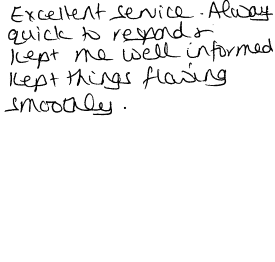 Excellent service. Always
quick to respond &
kept me well informed
kept things flowing
smoothly.